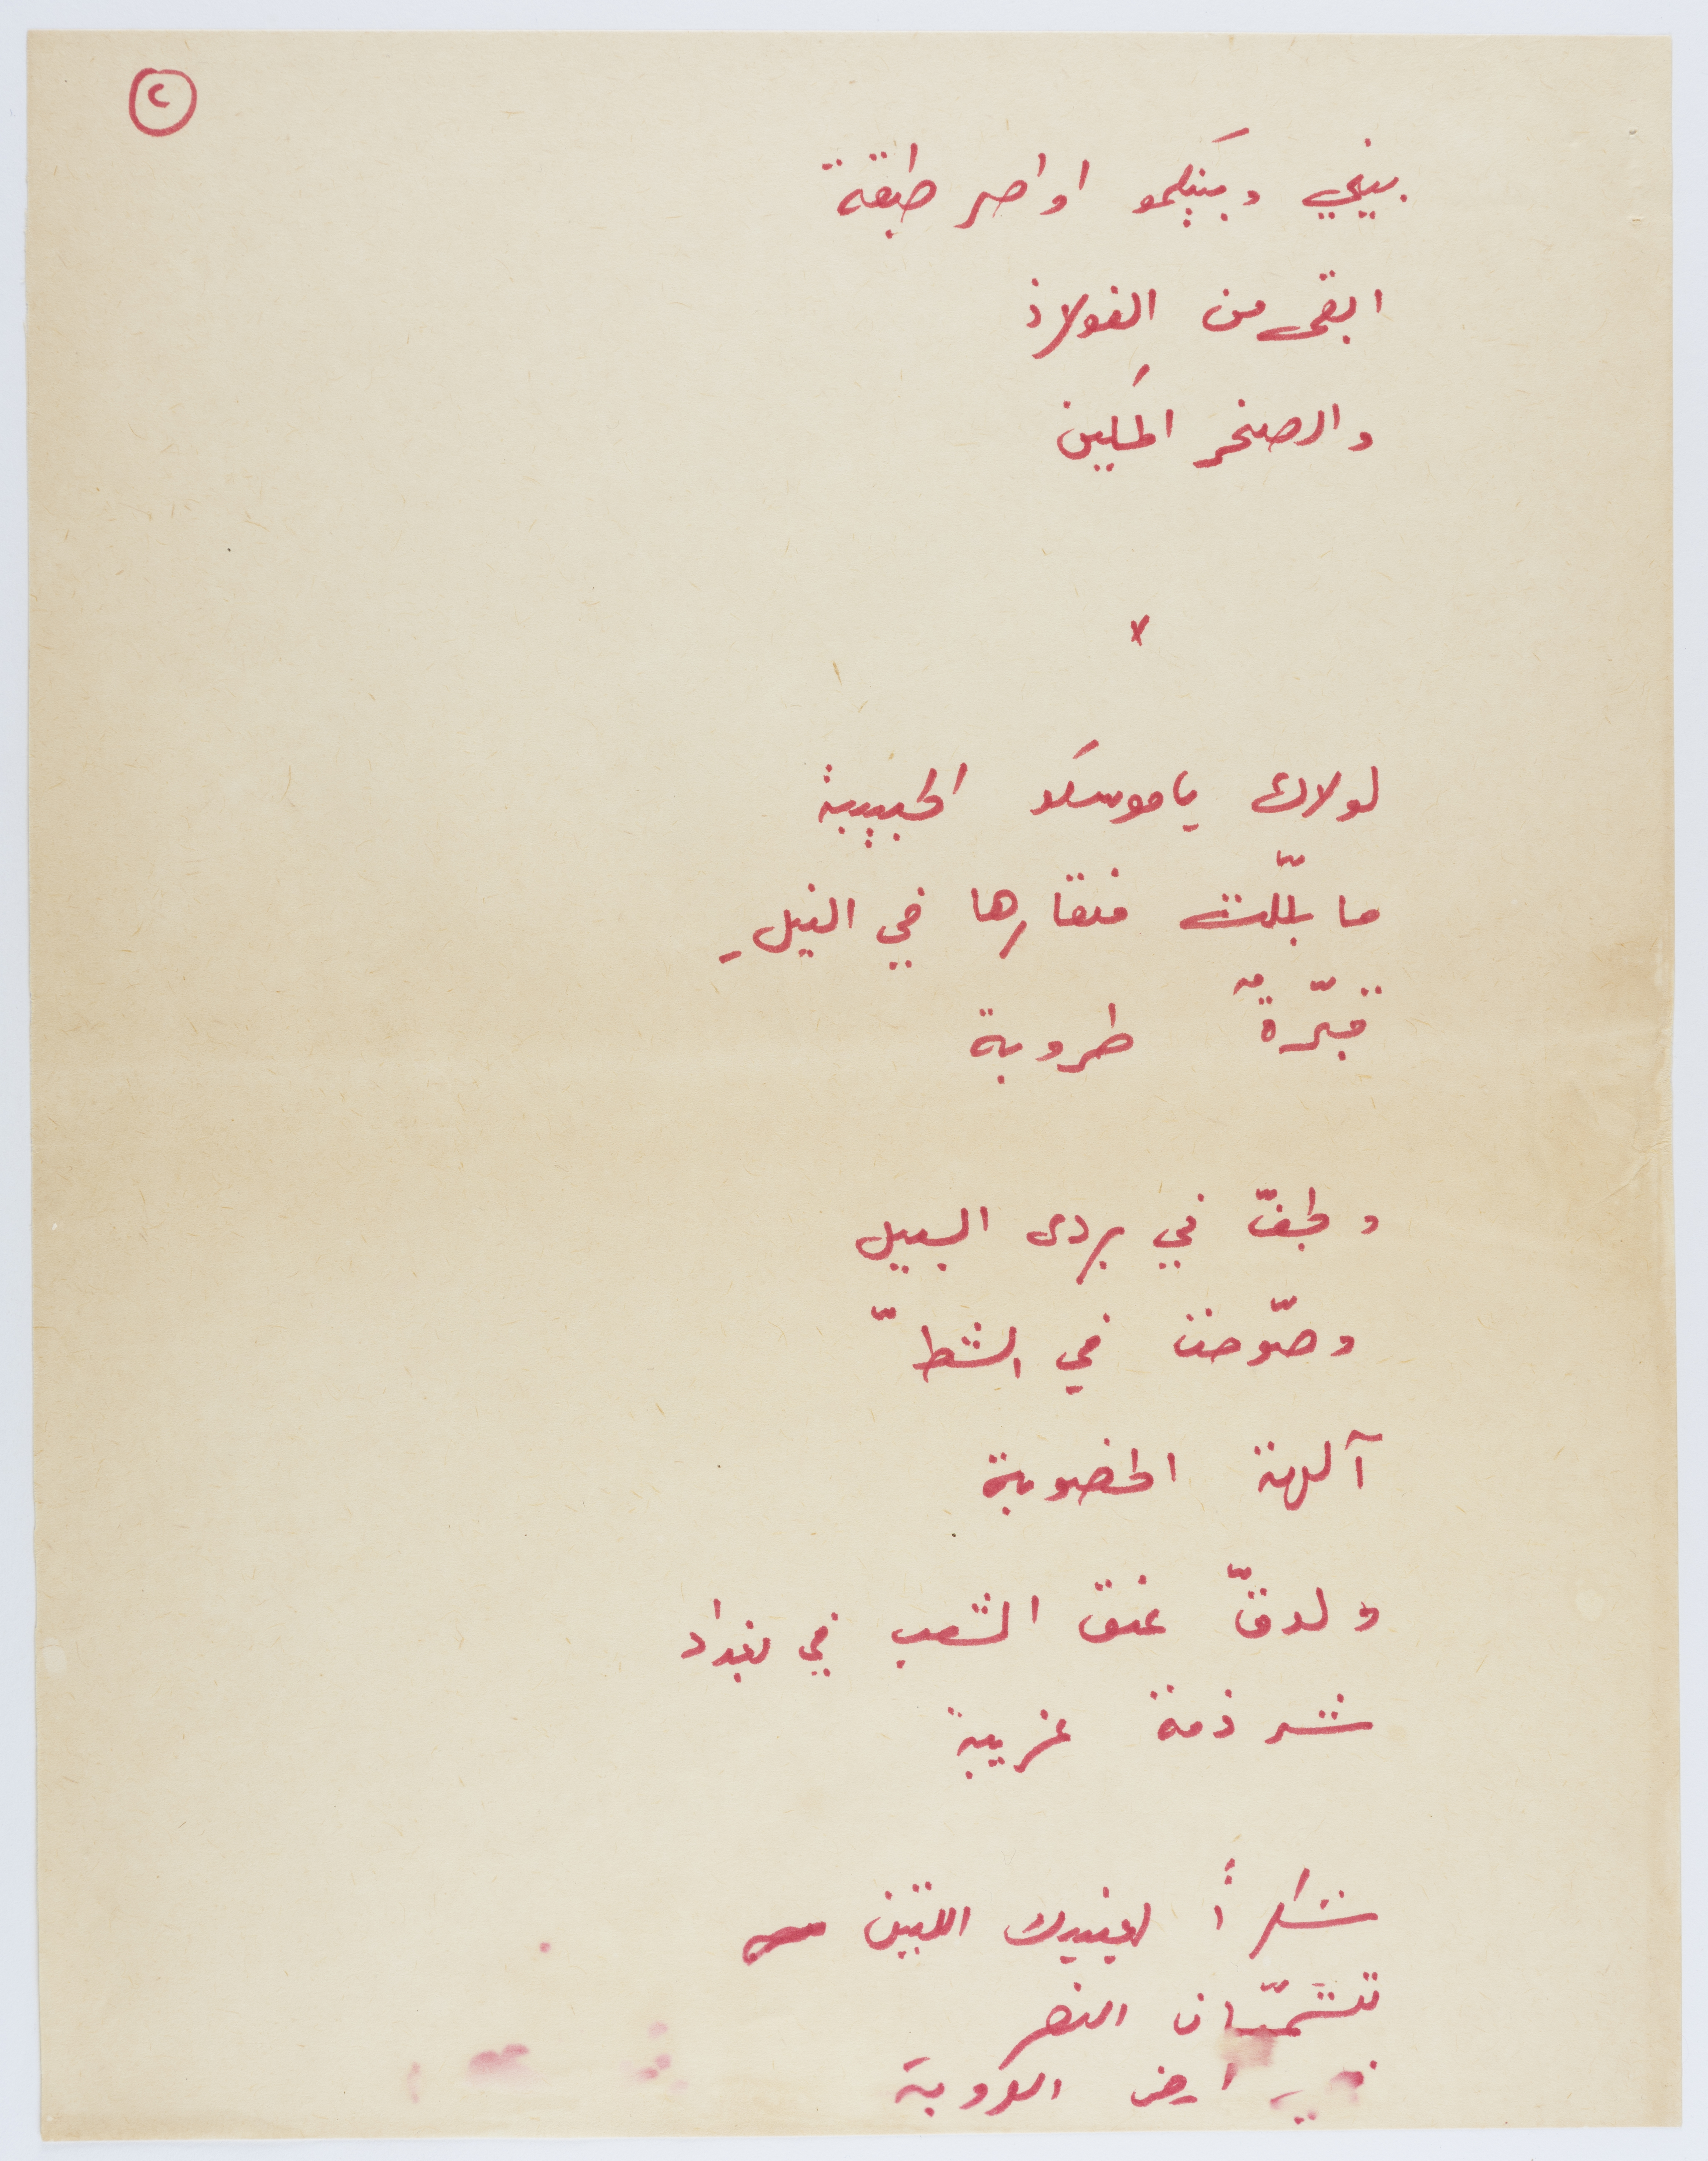 ٢
بيني وبينكمو اواصر طبقة
ابقى من الفولاذ
والصخر المكين
لولاك يا موسكو الحبيبة
ما بلّلت منقارها في النيلِ
قبّرةٌ طروبة
ولجفّ في بردى السبيل
وصوّحت في الشطّ
آلهة الخصوبة
ولدقّ عنق الشعب في بغداد
شرذمة غريبة
شكراً لعينيك اللتين
تشمّسان النصر
في ارض العروبة